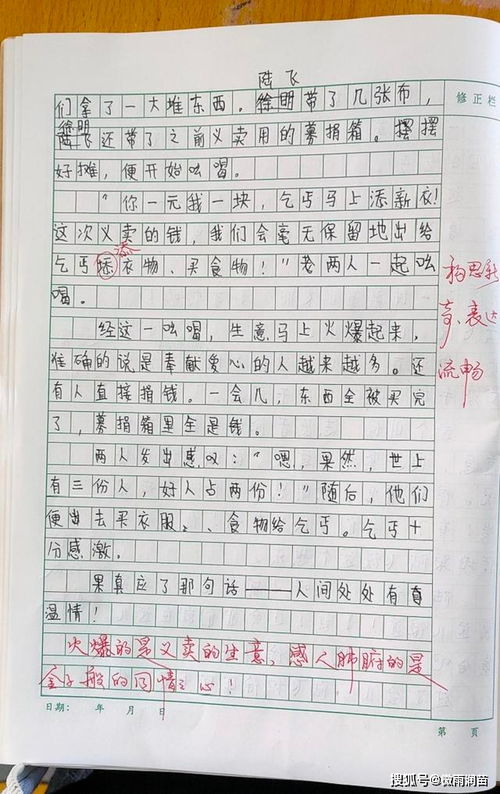 陆飞
们拿了一大堆东西。徐明带了几张布，
徐明
陆飞还带了之前义卖用的募捐箱。摆摆
好摊，便开始吆喝。
“你一元我一块，乞丐马上添新衣！
这次义卖的钱，我们会毫无保留地出给
添
乞丐添衣物、买食物！”老两人一起吆
喝。
经这一吆喝，生意马上火爆起来，
准确的说是奉献爱心的人越来越多。还
有人直接捐钱。一会儿，东西全被买完
了，募捐箱里全是钱。
两人发出感叹：“嗯，果然，世上
有三份人，好人占两份！”随后，他们
便出去买衣服、、食物给乞丐。乞丐十
分感激。
果真应了那句话——人间处处有真
温情！
火爆的是义卖的生意，感人肺腑的是
金子般的同情之心！
修正栏
构思新
奇、表达
流畅
日期： 年 月 日
第 页
搜狐号@微雨润苗